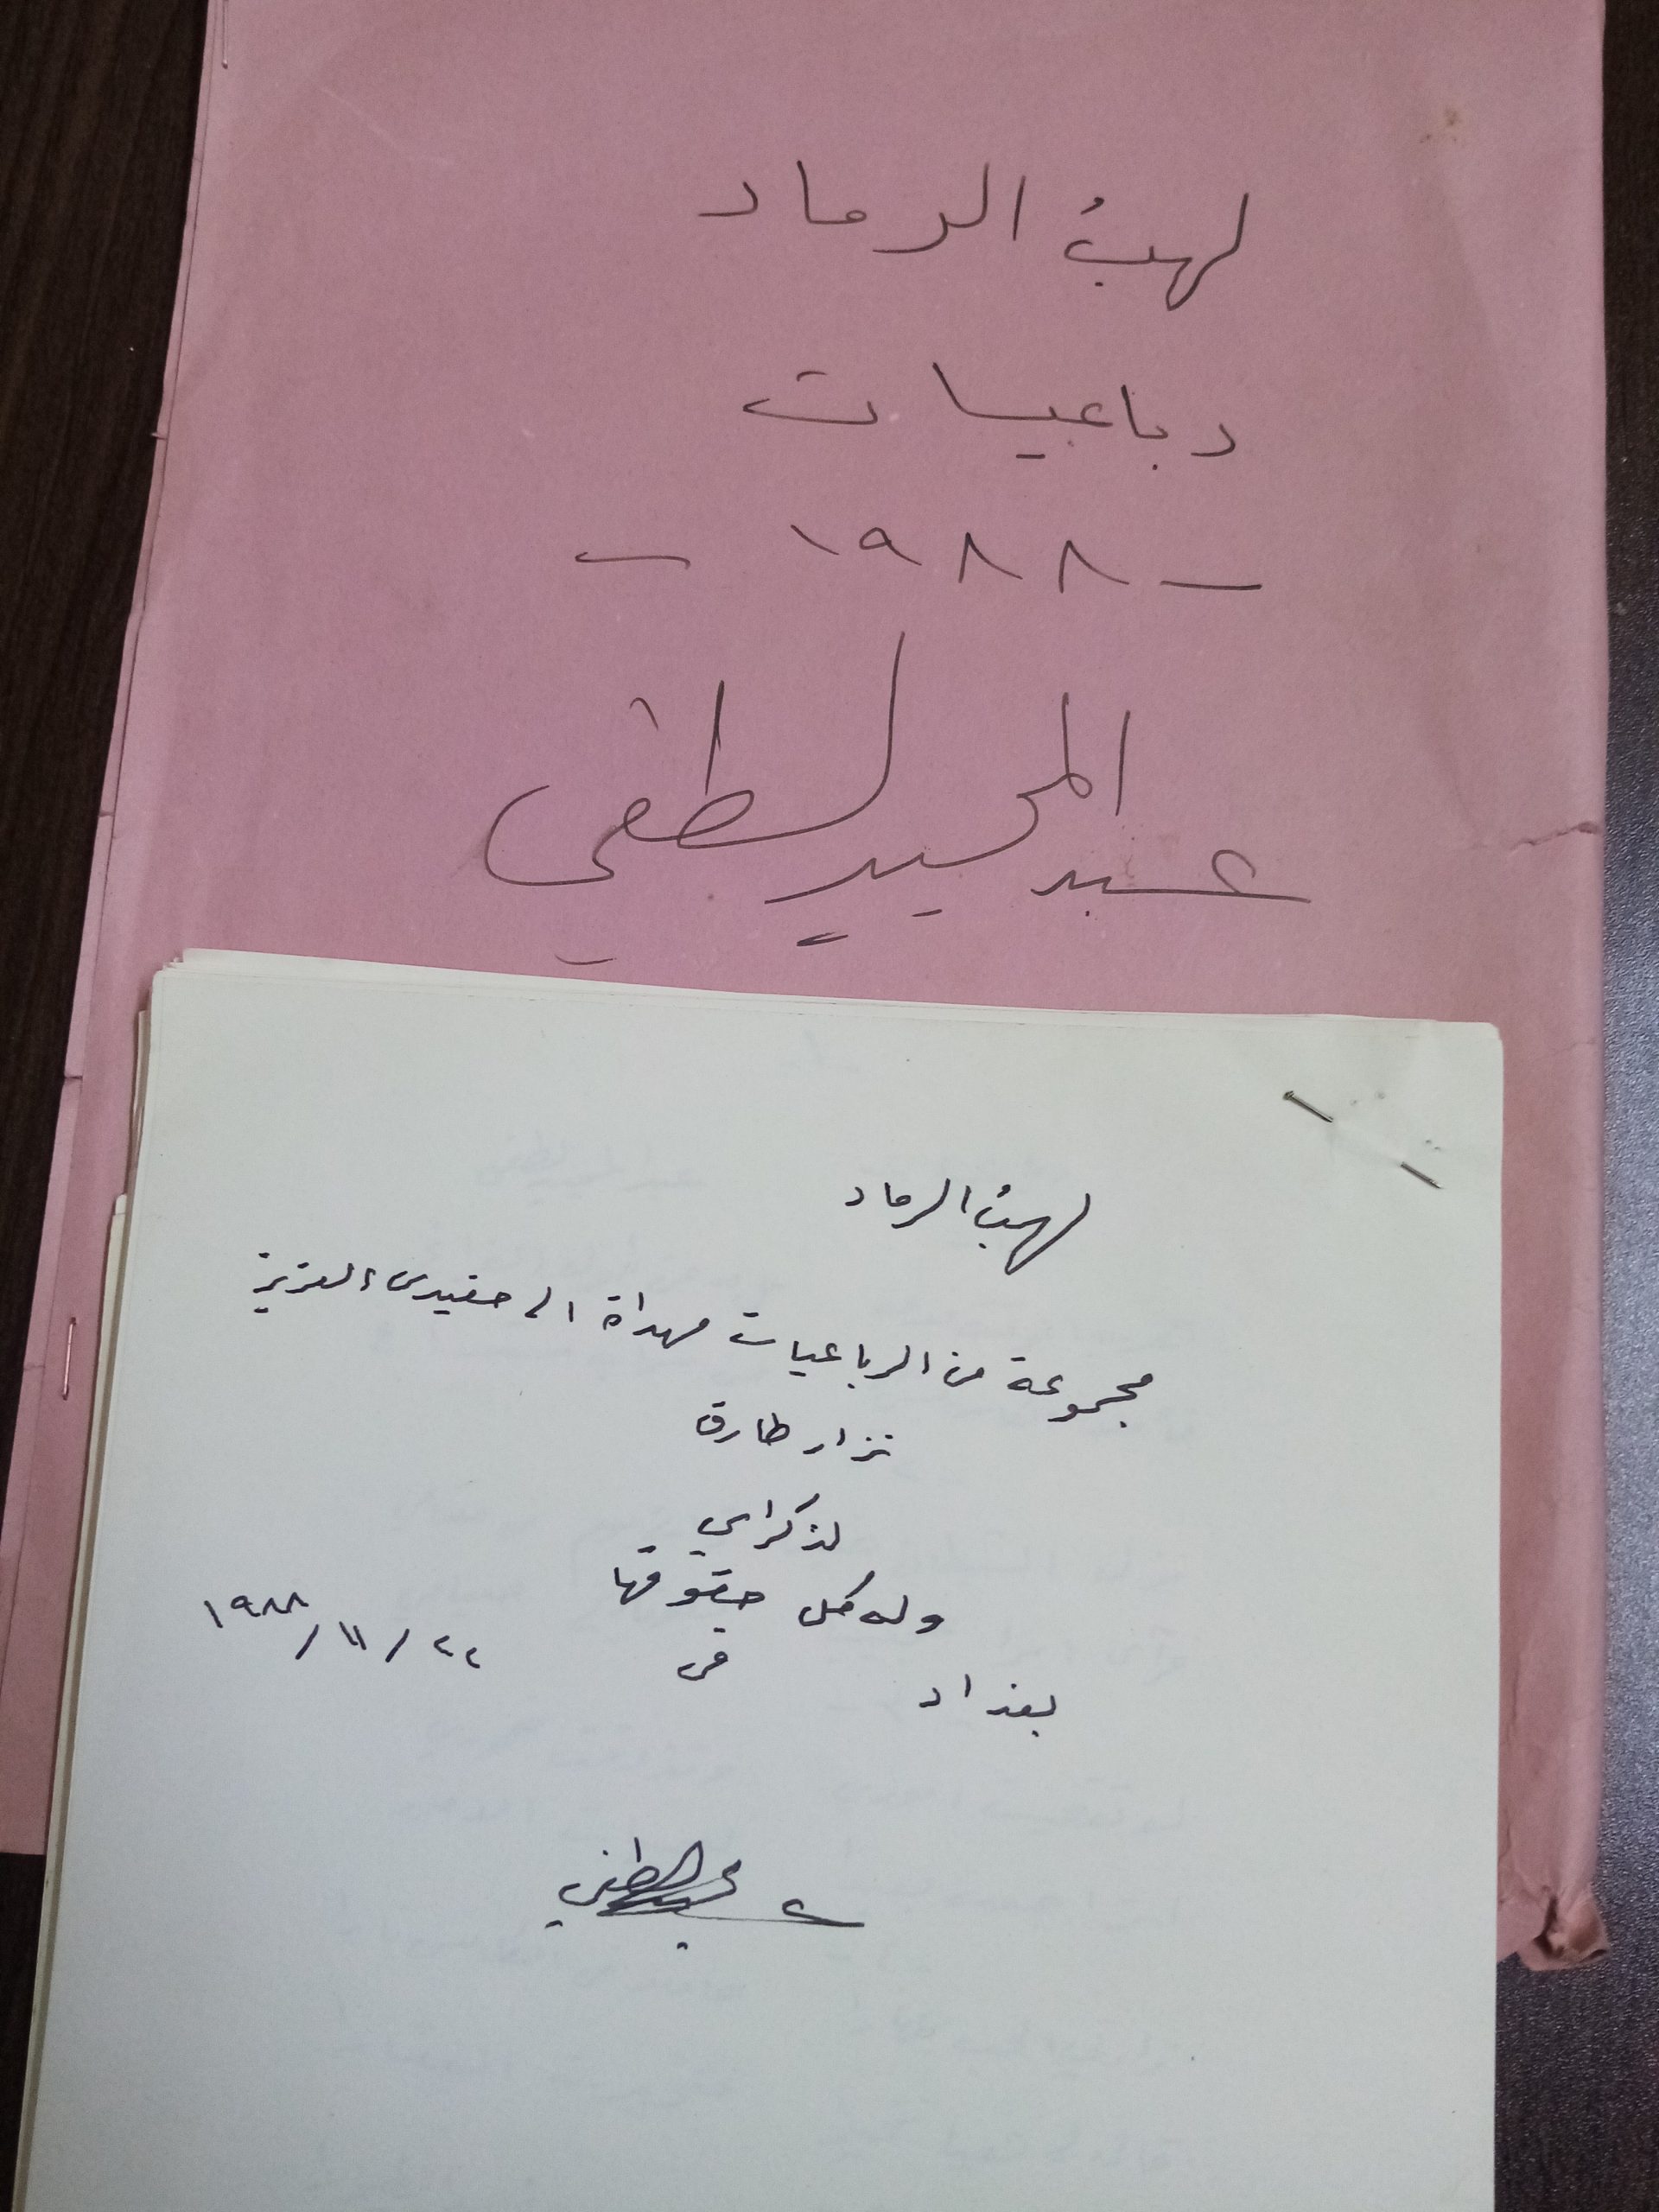 لهبُ الرماد
رباعيات
- ١٩٨٨ -
عبد المجيد لطفي
لهبُ الرماد
مجموعة من الرباعيات مهداة الى حفيدي العزيز
نزار طارق
لذكراي
وله كل حقوقها
بغداد في ٢٢/١١/١٩٨٨